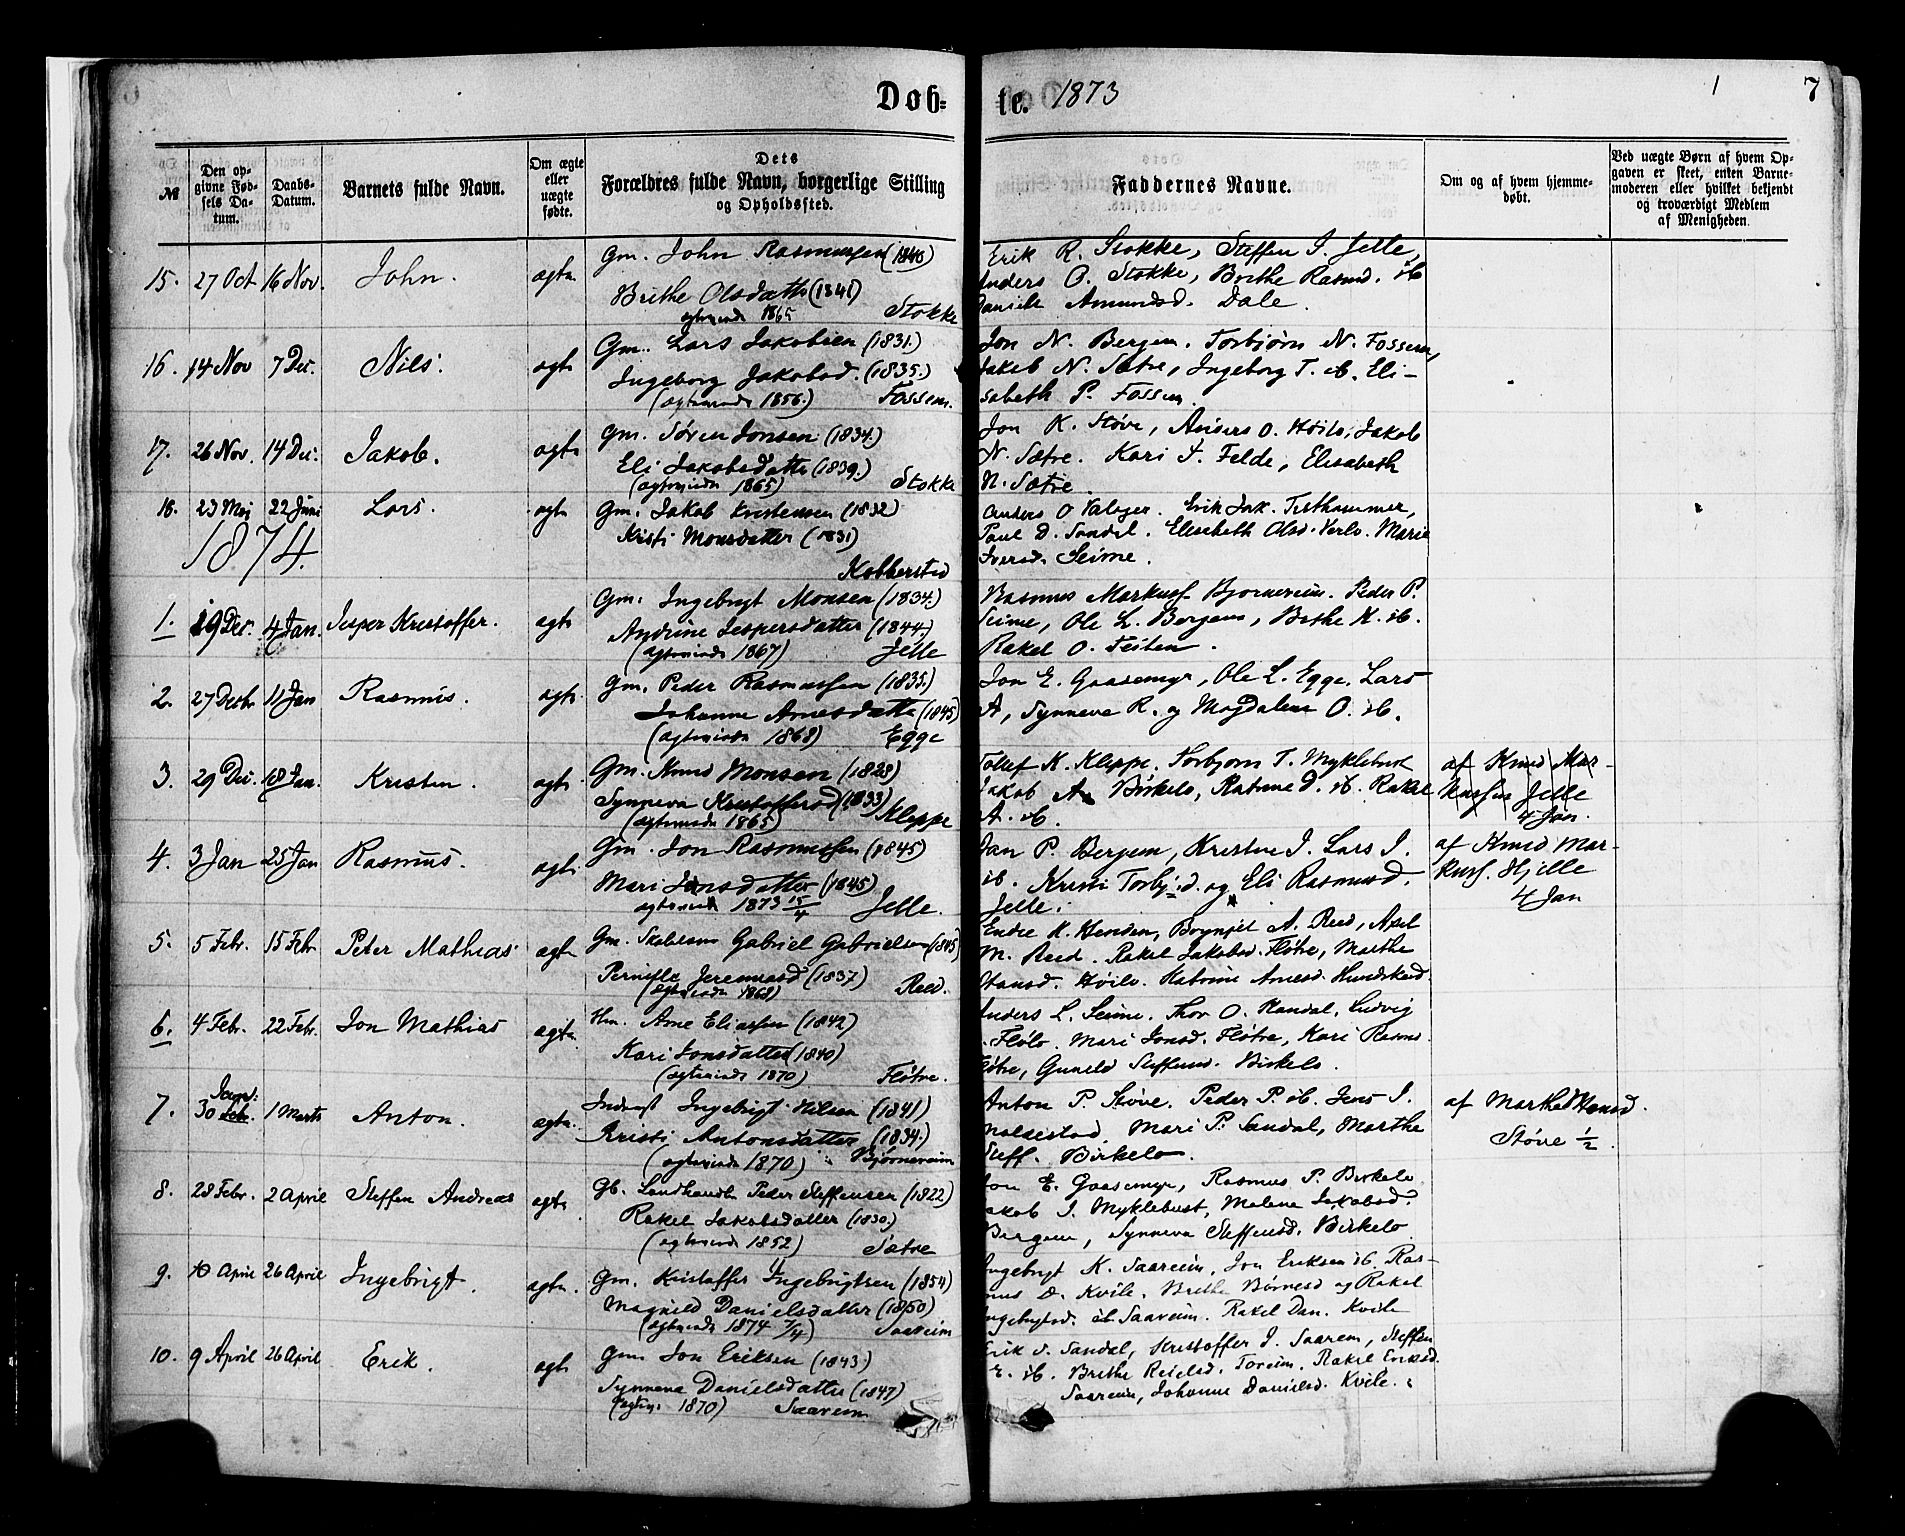 Døb-
te. 1873
1
7
№
Den op-
givne Fød-
sels Da-
tum.
Daabs-
Datum.
Barnets fulde Navn.
Om ægte
eller
uægte
fødte.
Dets
Forældres fulde Navn, borgerlige Stilling
og Opholdssted.
Faddernes Navne.
Om og af hvem hjemme-
døbt.
Ved uægte Børn af hvem Op-
gaven er skeet, enten Barne-
moderen eller hvilket bekjendt
og troværdigt Medlem
af Menigheden.
15. 27 Oct 16 Nov. John. ægte Gm. John Rasmussen (1840)
Brithe Olsdatte (1841)
1865 Stokke
Erik R. Stokke, Steffen J. Jelle,
Anders O. Stokke, Brithe Rasmd. ib
Amundsd. Dale.
16. 14 Nov 7 Dec. Nils. ægte Gm. Lars Jakobsen (1831.)
Ingeborg Jakobsd. (1835.)
(ægteviede 1856.) Fossem.
Jon N. Bergem. Torbjørn N. Fossem,
Jakob N. Sætre, Ingeborg T. ib. Eli-
sabeth P. Fossem.
17. 26 Nov. 14 Dec. Jakob. ægte Gm. Søren Jonsen (1834.)
Eli Jakobsdatte (1839.)
(ægteviede 1865) Stokke
Jon K. Støve, Anders O. Hoilo, Jakob
N. Sætre. Kari F. Felde, Elisabeth
N. Sætre.
18. 23 Mai 22 Juni Lars. ægte Gm. Jakob Kristensen (1832)
Kristi Monsdatter (1831)
Kobberstad
Anders O Valager. Erik Jak. Tisthammer,
Paul D. Sandal. Elisebeth Olsd. Verlo. Marie
Iversd. Seime.
1874.
1. 19 Dec. 4 Jan. Jesper Kristoffer. ægte Gm. Ingebrigt Monsen (1834.)
Andrine Jespersdatter (1844.)
(ægteviede 1867) Jelle
Rasmus Markuss. Bjornereim. Peder P.
Seime, Ole L. Bergem, Brithe K. ib.
Rakel O. Feiten.
2. 27 Decbr. 11 Jan Rasmus. ægte Gm. Peder Rasmussen (1835.)
Johanne Arnesdatte (1845)
(ægteviede 1868) Egge
Jon E. Gaasemyr, Ole L. Egge, Lars
A, Synneva R. og Magdalene O. ib.
3. 29 Dec. 18 Jan. Kristen. ægte Gm. Knud Monsen (1828)
Synneva Kristoffersd (1833)
(ægteviede 1865) Kleppe
Tollef K. Kleppe. Torbjørn T. Myklebust
Jakob A. Birkelo, Rasmine D. ib. Rakel
A. ib.
af Knud Mar-
kussen Jelle
4 Jan.
4. 3 Jan 25 Jan Rasmus. ægte Gm. Jon Rasmussen (1845)
Mari Jonsdatter (1845)
ægteviede 1873 15/4 Jelle.
Jan P. Bergem, Kristine J. Lars J.
ib. Kristi Torbj.d. og Eli Rasmusd.
Jelle.
af Knud Mar-
kuss. Hjelle
4 Jan
5. 5 Febr. 15 Febr Peter Mathias. ægte Gm. Gabriel Gabrielsen (1845)
Pernille Jeremiasd (1837)
(ægteviede 1868) Reed.
Endre K. Henden, Brynjel A. Reed, Axel
M. Reed. Rakel Jakobsd. Fløtre, Marthe
Hansd. Hoilo. Katrine Arnesd.
6. 4 Febr. 22 Febr. Jon Mathias ægte Hm. Arne Eliassen (1842)
Kari Jonsdatter (1840)
(ægteviede 1870) Fløtre.
Anders L. Seime. Thor O. Randal, Ludvig
Fløtre. Mari Jonsd. Fløtre, Kari Rasmd.
Fløtre, Gunild Steffensd. Birkelo.
7. Janr: 30 Febr. 1 Marts Anton. ægte. Inderst Ingebrigt Nilsen (1841)
Kristi Antonsdatter (1834.)
(ægteviede 1870) Bjørnereim
Anton P. Støve. Peder P. ib. Jens J.
Moldestad. Mari P. Sandal, Marthe
Steff. Birkelo.
af Marthe Hansd.
Støve 1/2
8. 28 Febr. 2 April Steffen Andreas ægte Gb. Landhandl. Peder Steffensen (1822)
Rakel Jakobsdatter (1830.)
(ægteviede 1852) Sætre
Jon E. Gaasemyr, Rasmus P. Birkelo
Jakob J. Myklebust, Malene Jakobsd.
Bergem, Synneva Steffensd. Birkelo
9. 10 April 26 April Ingebrigt. ægte. Gm. Kristoffer Ingebrigtsen (1854)
Magnild Danielsdatter (1850)
(ægteviede 1874 7/4) Saareim
Ingebrigt K. Saareim, Jon Eriksen ib. Ras-
mus D. Kvile. Brithe Børnesd og Rakel
Ingebrigtsd. ib Saareim. Rakel Dan. Kvile
10. 9 April 26 April Erik. ægte Gm Jon Eriksen (1843.)
Synneva Danielsdatter (1847)
(ægtev. 1870) Saareim
Erik S. Sandal, Kristoffer J. Saarem, Steffen
E. ib. Brithe Reielsd. Toreim. Rakel Eriksd.
Saareim, Johanne Danielsd. Kvile.